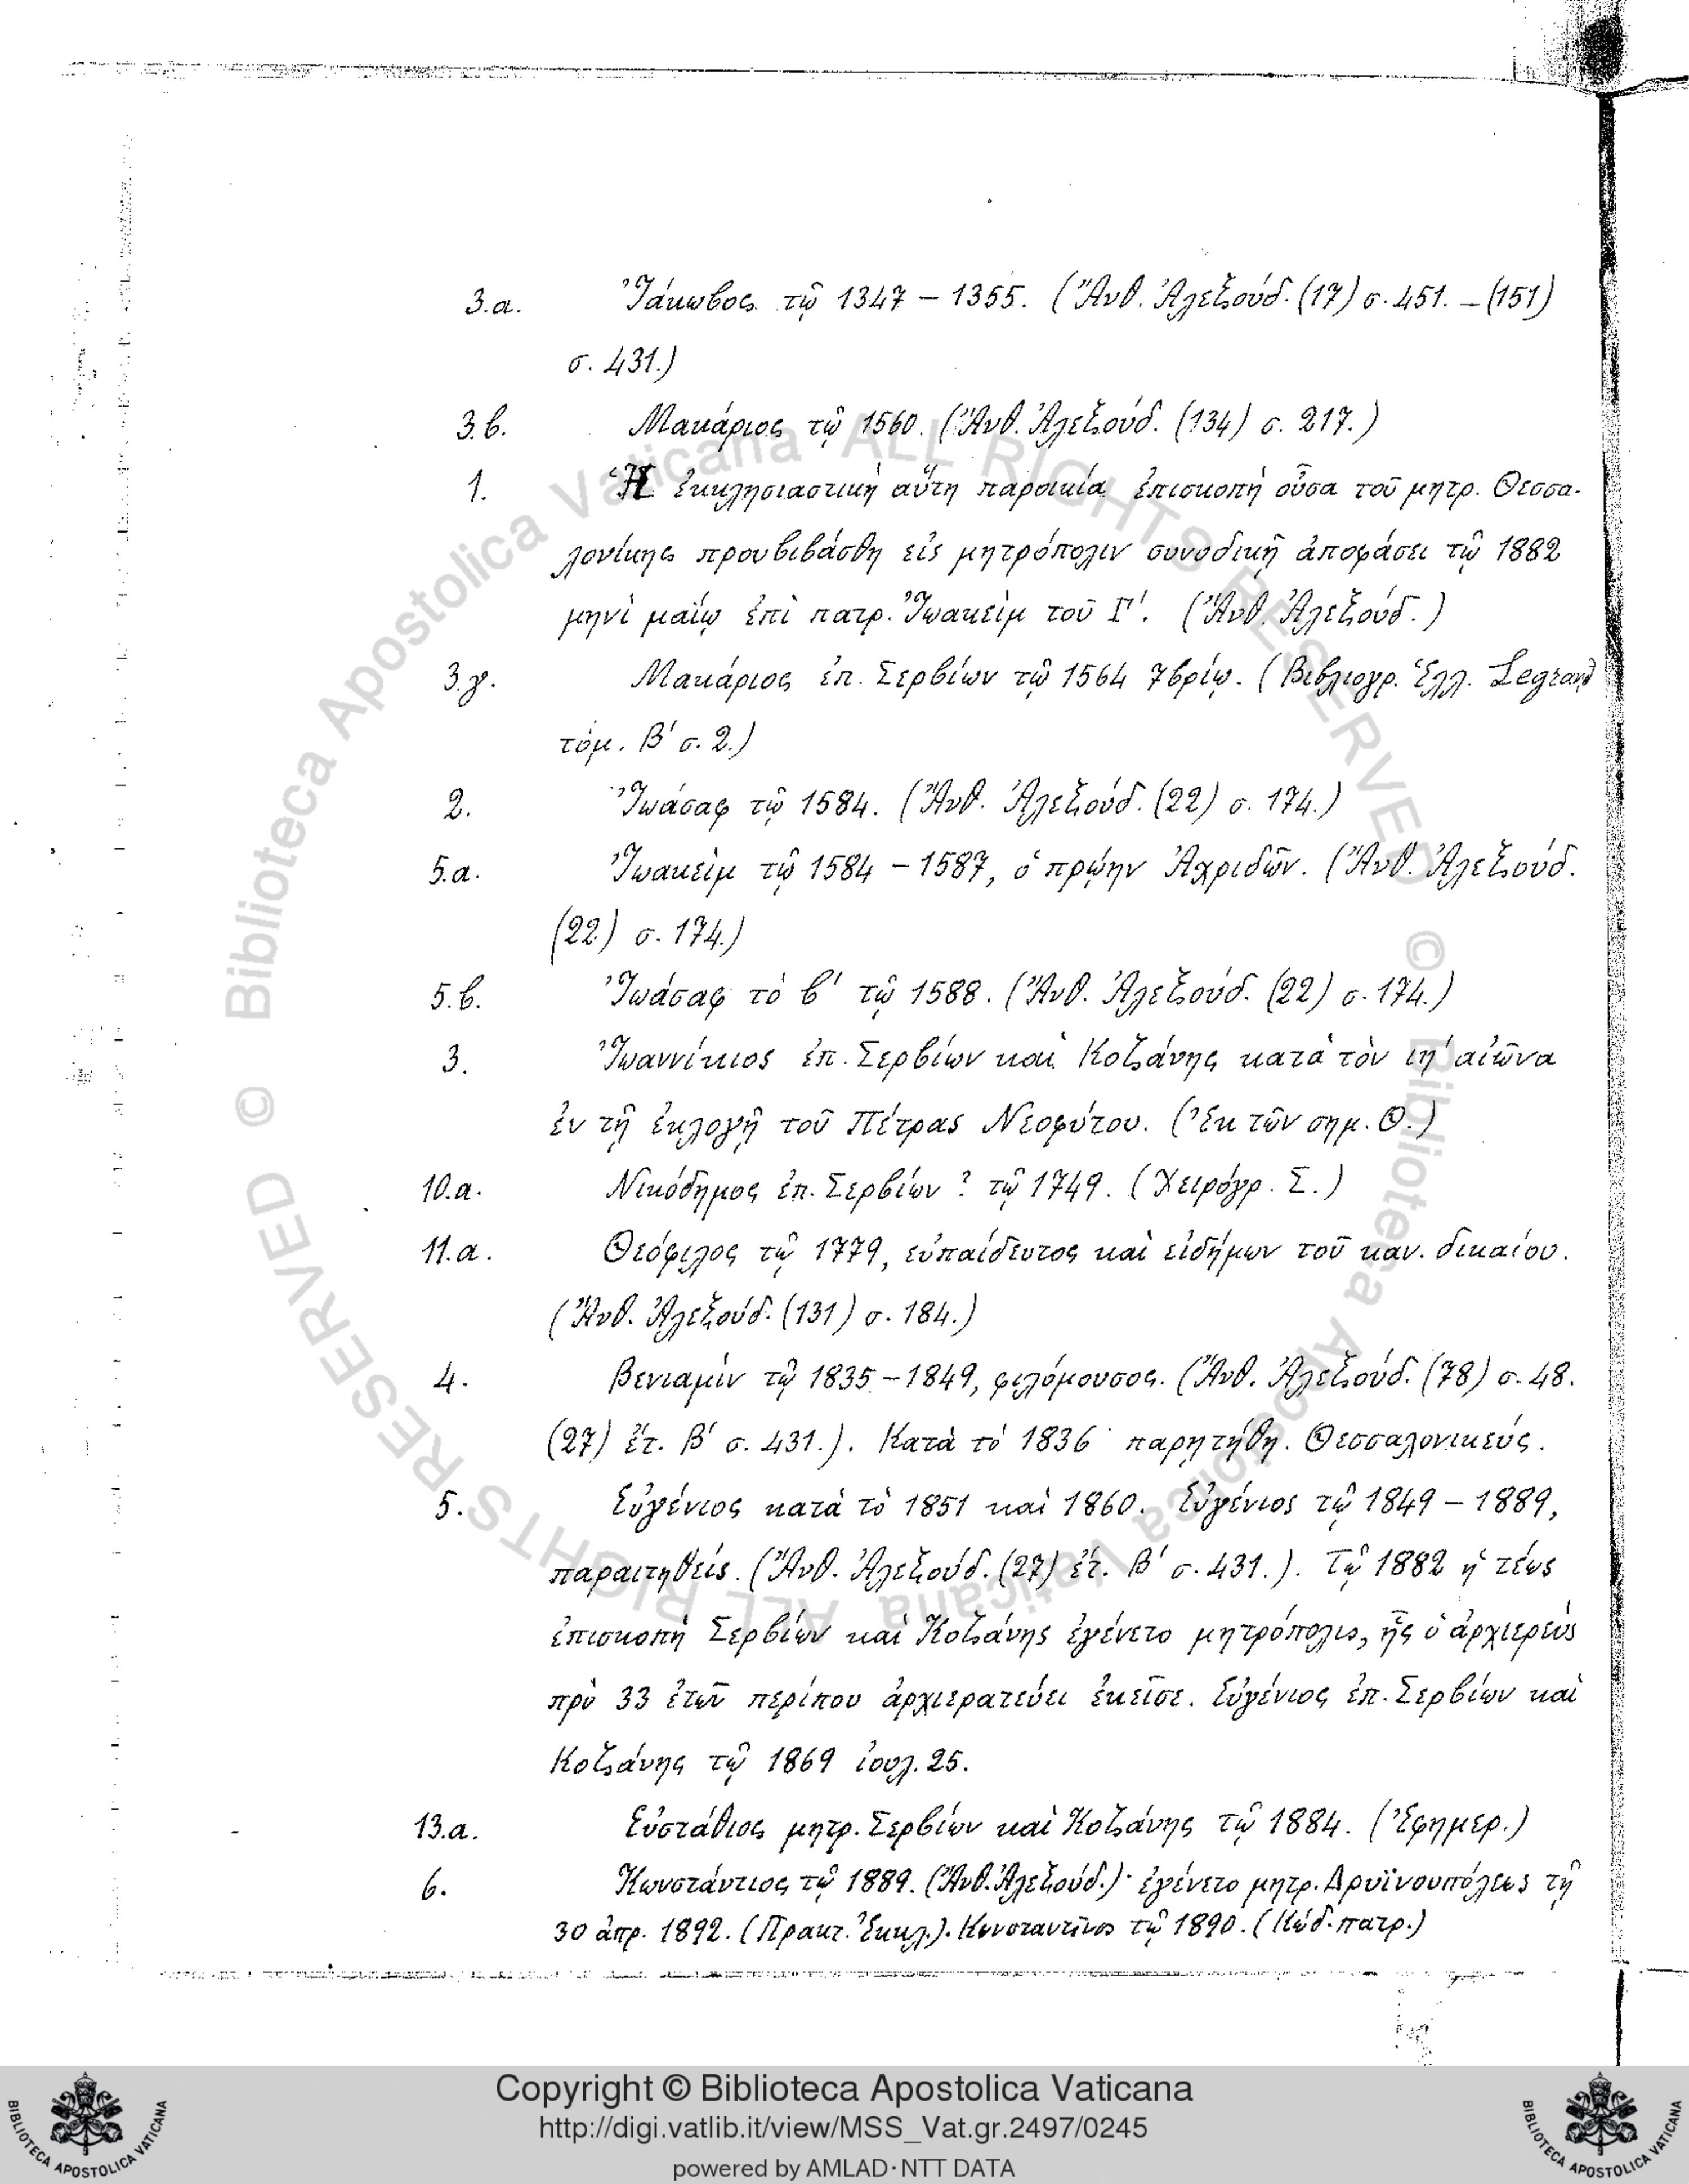 3.α. Ἰάκωβος τῷ 1347 – 1355. (Ἄνθ. Ἀλεξούδ. (17) σ. 451. – (151)
σ. 431.)
3.β. Μακάριος τῷ 1560. (Ἄνθ. Ἀλεξούδ. (134) σ. 217.)
1. Ἡ ἐκκλησιαστικὴ αὕτη παροικία ἐπισκοπὴ οὖσα τοῦ μητρ. Θεσσα-
λονίκης προυβιβάσθη εἰς μητρόπολιν συνοδικῇ ἀποφάσει τῷ 1882
μηνὶ μαΐῳ ἐπὶ πατρ. Ἰωακεὶμ τοῦ Γ'. (Ἄνθ. Ἀλεξούδ.)
3.γ. Μακάριος ἐπ. Σερβίων τῷ 1564 7βρίῳ. (Βιβλιογρ. Ἑλλ. Legrand
τόμ. Β' σ. 2.)
2. Ἰωάσαφ τῷ 1584. (Ἄνθ. Ἀλεξούδ. (22) σ. 174.)
5.α. Ἰωακεὶμ τῷ 1584 – 1587, ὁ πρώην Ἀχριδῶν. (Ἄνθ. Ἀλεξούδ.
(22) σ. 174.)
5.β. Ἰωάσαφ τὸ β' τῷ 1588. (Ἄνθ. Ἀλεξούδ. (22) σ. 174.)
3. Ἰωαννίκιος ἐπ. Σερβίων καὶ Κοζάνης κατὰ τὸν ιη' αἰῶνα
ἐν τῇ ἐκλογῇ τοῦ Πέτρας Νεοφύτου. (Ἐκ τῶν σημ. Θ.)
10.α. Νικόδημος ἐπ. Σερβίων? τῷ 1749. (Χειρόγρ. Σ.)
11.α. Θεόφιλος τῷ 1779, εὐπαίδευτος καὶ εἰδήμων τοῦ καν. δικαίου.
(Ἄνθ. Ἀλεξούδ. (131) σ. 184.)
4. Βενιαμὶν τῷ 1835 – 1849, φιλόμουσος. (Ἄνθ. Ἀλεξούδ. (78) σ. 48.
(27) ἔτ. Β' σ. 431.). Κατὰ τὸ 1836 παρῃτήθη. Θεσσαλονικεύς.
5. Εὐγένιος κατὰ τὸ 1851 καὶ 1860. Εὐγένιος τῷ 1849 – 1889,
παραιτηθείς. (Ἄνθ. Ἀλεξούδ. (27) ἔτ. Β' σ. 431.). Τῷ 1882 ἡ τέως
ἐπισκοπὴ Σερβίων καὶ Κοζάνης ἐγένετο μητρόπολις, ἧς ὁ ἀρχιερεὺς
πρὸ 33 ἐτῶν περίπου ἀρχιερατεύει ἐκεῖσε. Εὐγένιος ἐπ. Σερβίων καὶ
Κοζάνης τῷ 1869 ἰουλ. 25.
13.α. Εὐστάθιος μητρ. Σερβίων καὶ Κοζάνης τῷ 1884. (Ἐφημερ.)
6. Κωνστάντιος τῷ 1889. (Ἄνθ. Ἀλεξούδ.)· ἐγένετο μητρ. Δρυϊνουπόλεως τῇ
30 ἀπρ. 1892. (Πρακτ. Ἐκκλ.). Κωνσταντῖνος τῷ 1890. (Κώδ. πατρ.)
© Biblioteca Apostolica Vaticana ALL RIGHTS RESERVED © Biblioteca Apostolica Vaticana ALL RIGHTS RESERVED
Copyright © Biblioteca Apostolica Vaticana
http://digi.vatlib.it/view/MSS_Vat.gr.2497/0245
powered by AMLAD·NTT DATA
BIBLIOTECA APOSTOLICA VATICANA
BIBLIOTECA APOSTOLICA VATICANA